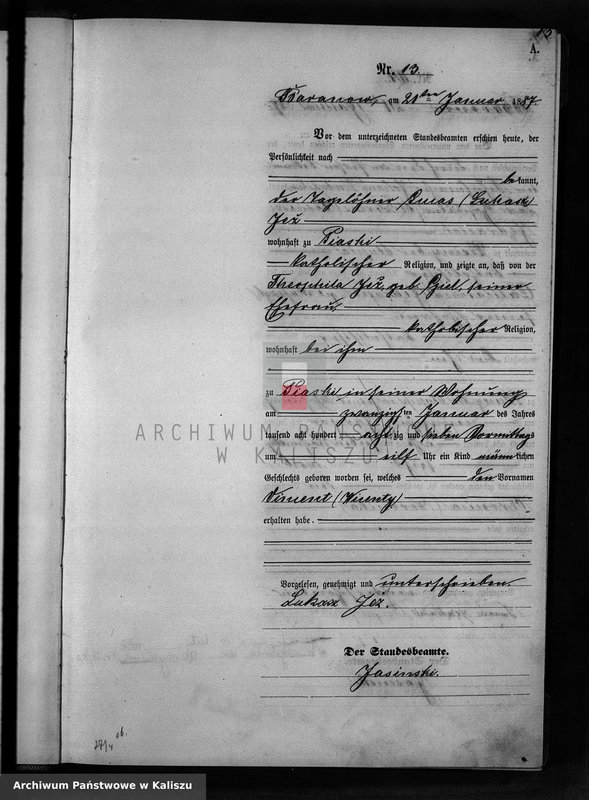 13
A.
Nr. 13.
Baranow, am 21ten Januar 1887.
Vor dem unterzeichneten Standesbeamten erschien heute, der
Persönlichkeit nach
bekannt,
der Tagelöhner Lucas (Lukasz)
Jeż
wohnhaft zu Piaski
katholischer Religion, und zeigte an, daß von der
Theophila Jeż, geb. seiner
Ehefrau,
katholischer Religion,
wohnhaft bei ihm
zu Piaski in seiner Wohnung
am zwanzigsten Januar des Jahres
tausend acht hundert achtzig und sieben Vormittags
um eilf Uhr ein Kind männlichen
Geschlechts geboren worden sei, welches den Vornamen
(Vincenty)
erhalten habe.
Vorgelesen, genehmigt und unterschrieben.
Lukasz Jeż.
Der Standesbeamte.
Jasinski.
ARCHIWUM PAŃSTWOWE
W KALISZU
Archiwum Państwowe w Kaliszu